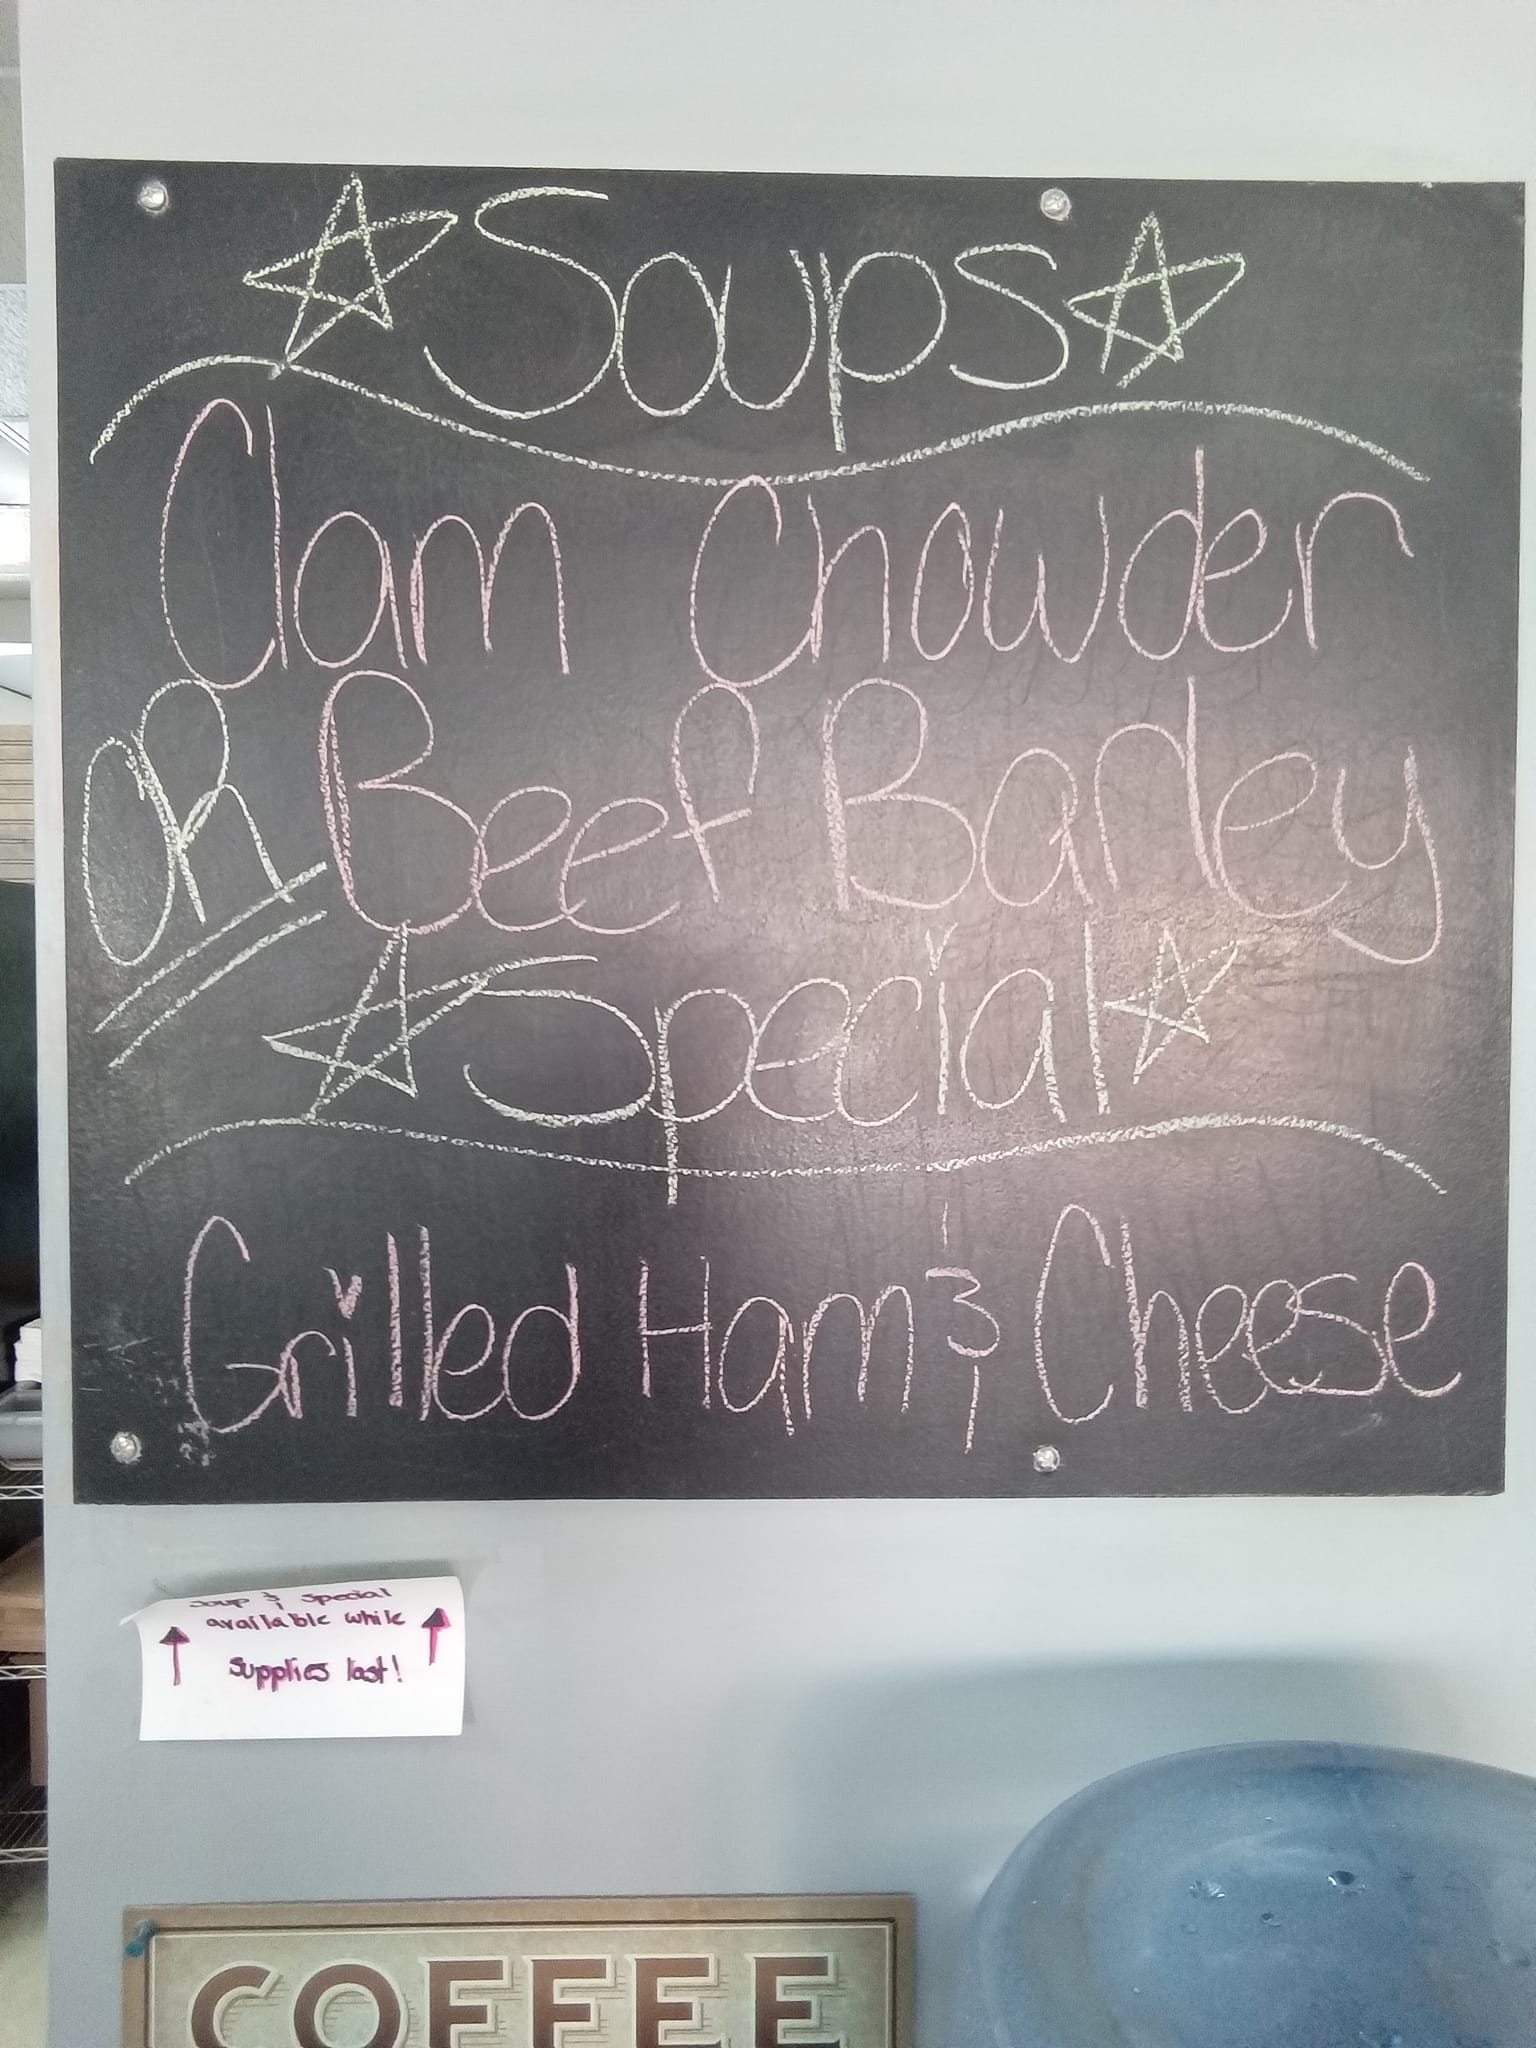 Soups
Clam Chowder
OR Beef Barley
Special
Grilled Ham & Cheese
Soup & Special
available while
supplies last!
COFFEE